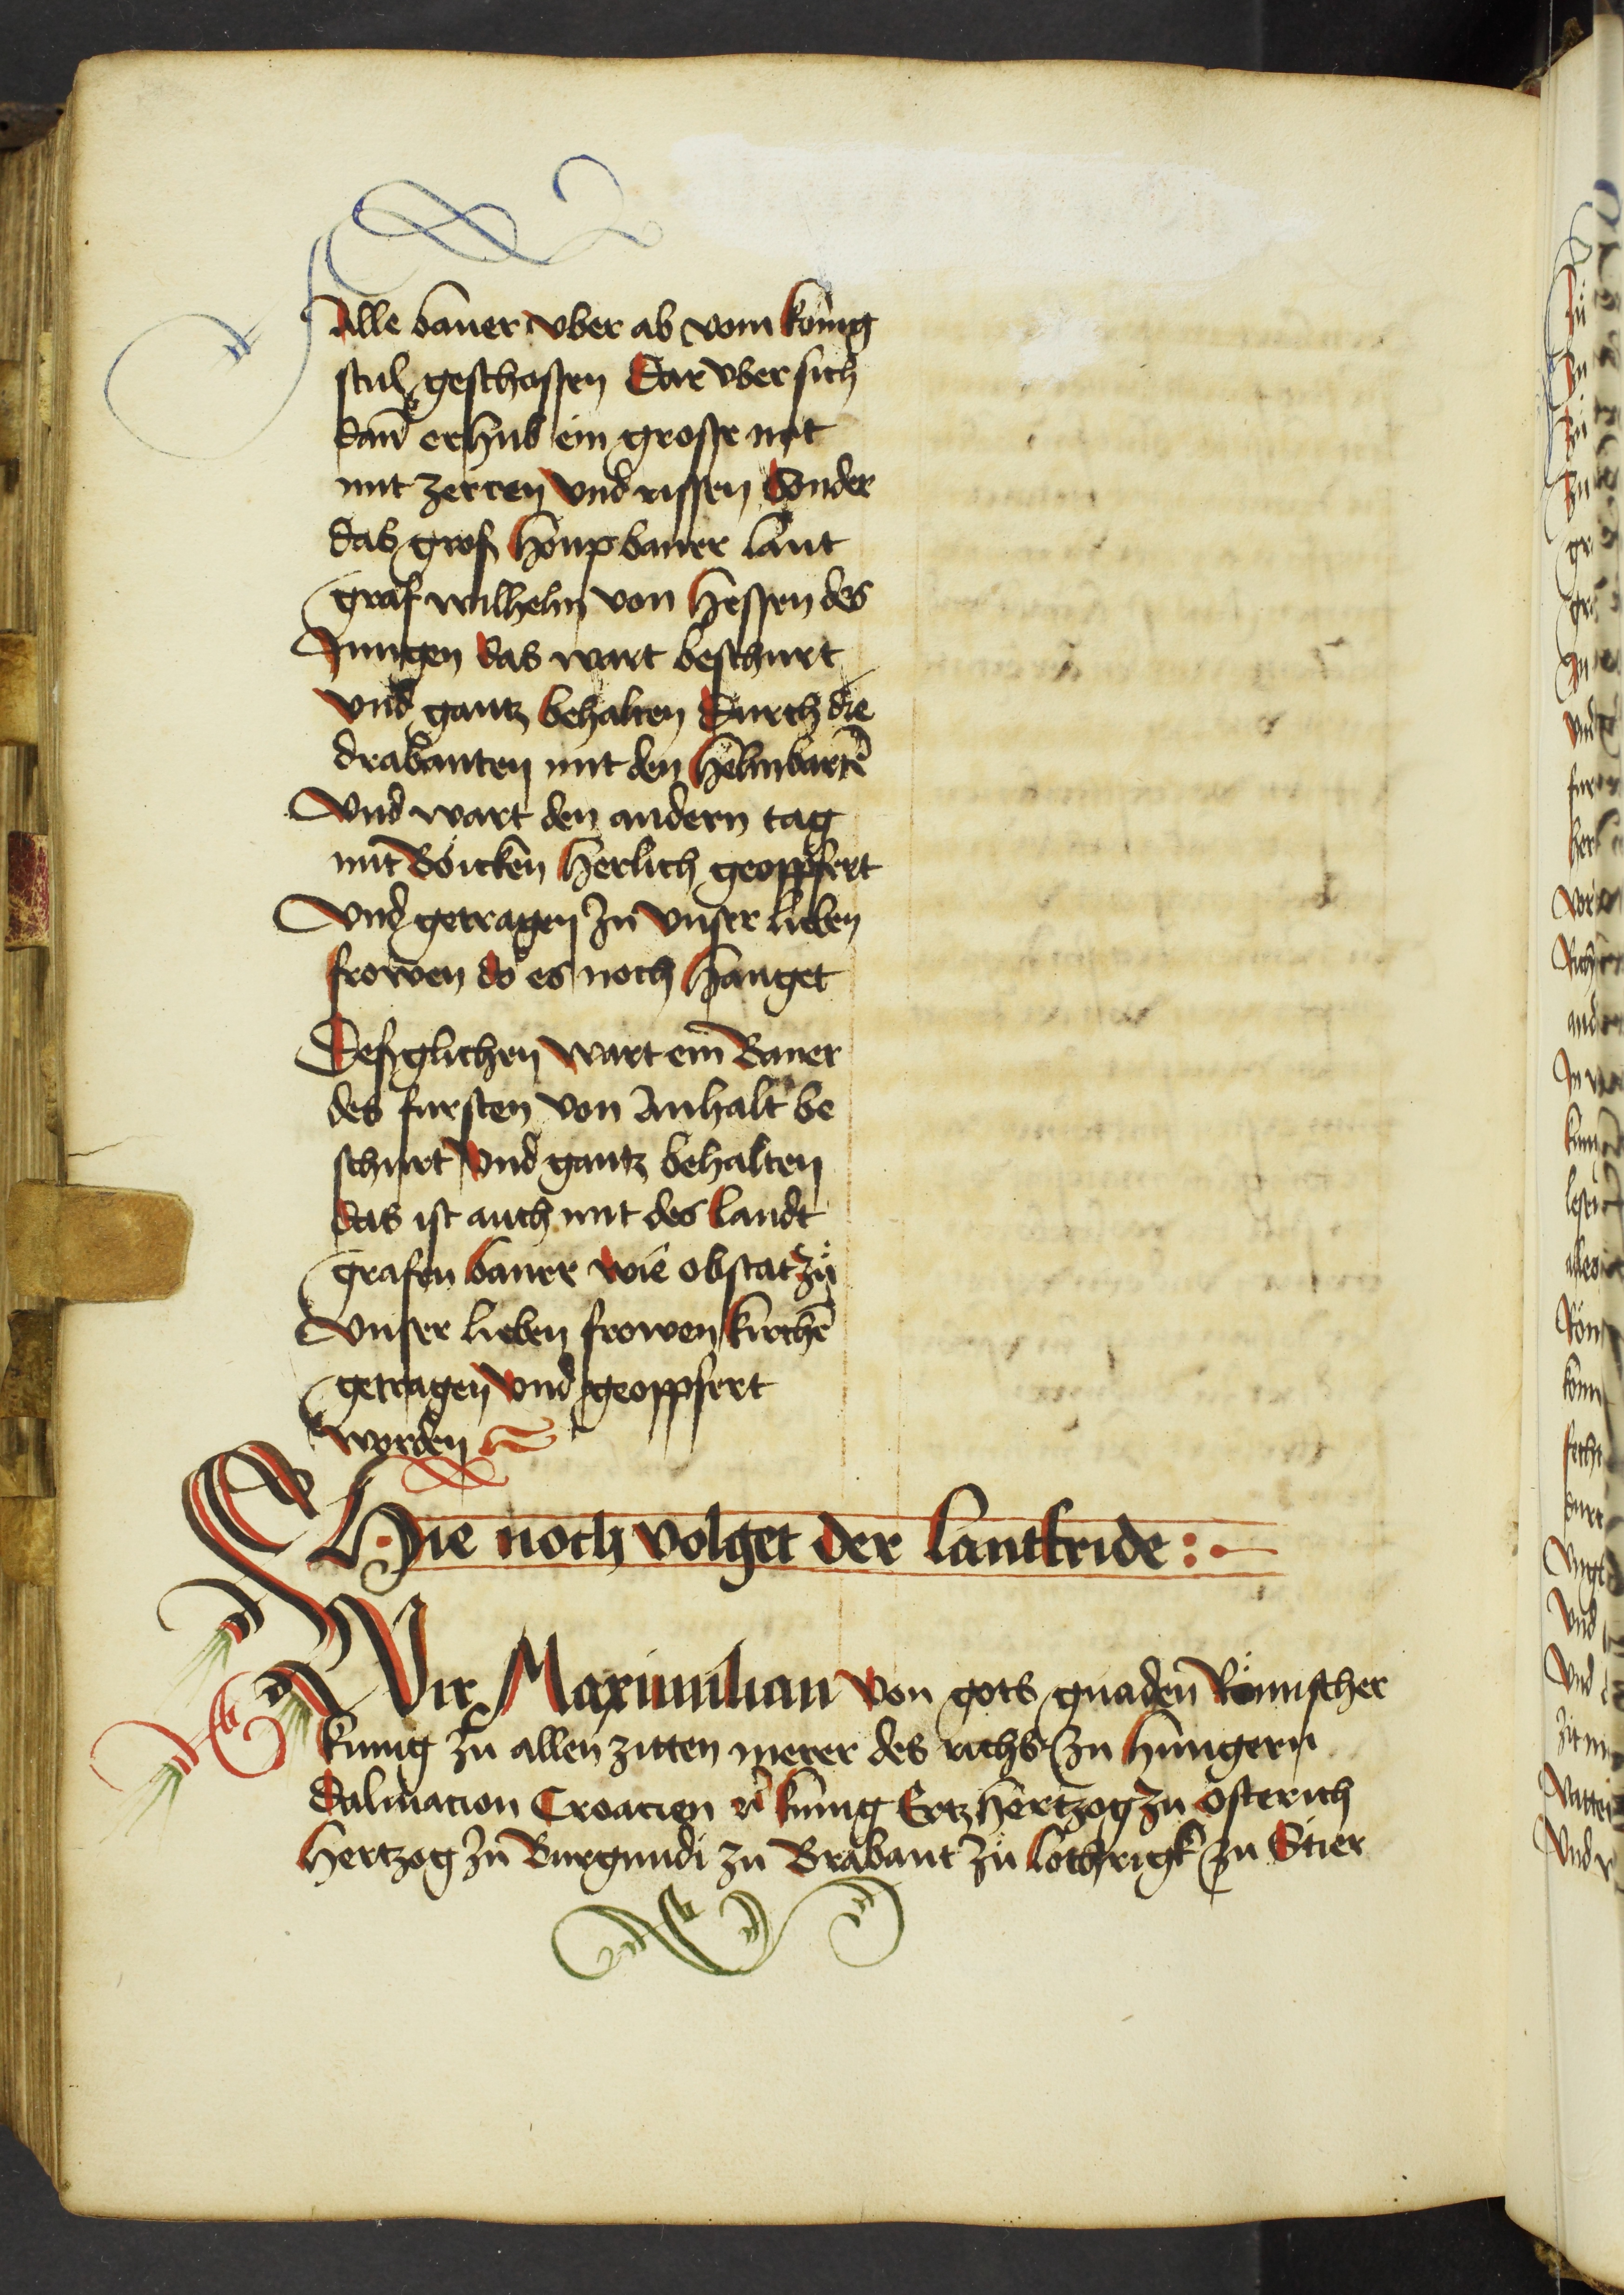 Alle baner vber ab vom konig
stul geschossen Dar vber sich
dan̄ erhub ein grosse not
mit zerren vnd rissen Sonder
das gros houpbaner lant
graf wilhelm von Hessen des
Jungen das wart beschurt
vnd gantz behalten Durch die
drabanten mit den helmbartē
Vnd wart den andern tag
mit Boicken herlich geoppfert
Vnd getragen zu vnser lieben
frowen do es noch hanget
Desglichen wart ein Baner
des fursten von Anhalt be
schurt vnd gantz behalten
das ist auch mit des landt
grafen baner wie obstat zů
Vnser lieben frowen kirchē
getragen vnd geoppfert
worden
Hie noch volget der lantfride :
WIr Maximilian von gots gnaden Römischer
kunig zu allen zitten merer des richs zu hungern
dalmacion Croacien rc̄ kunig Ertzhertzog zu osterich
Hertzog zu Burgundi zu Brabant zů lothrigk zu Stier